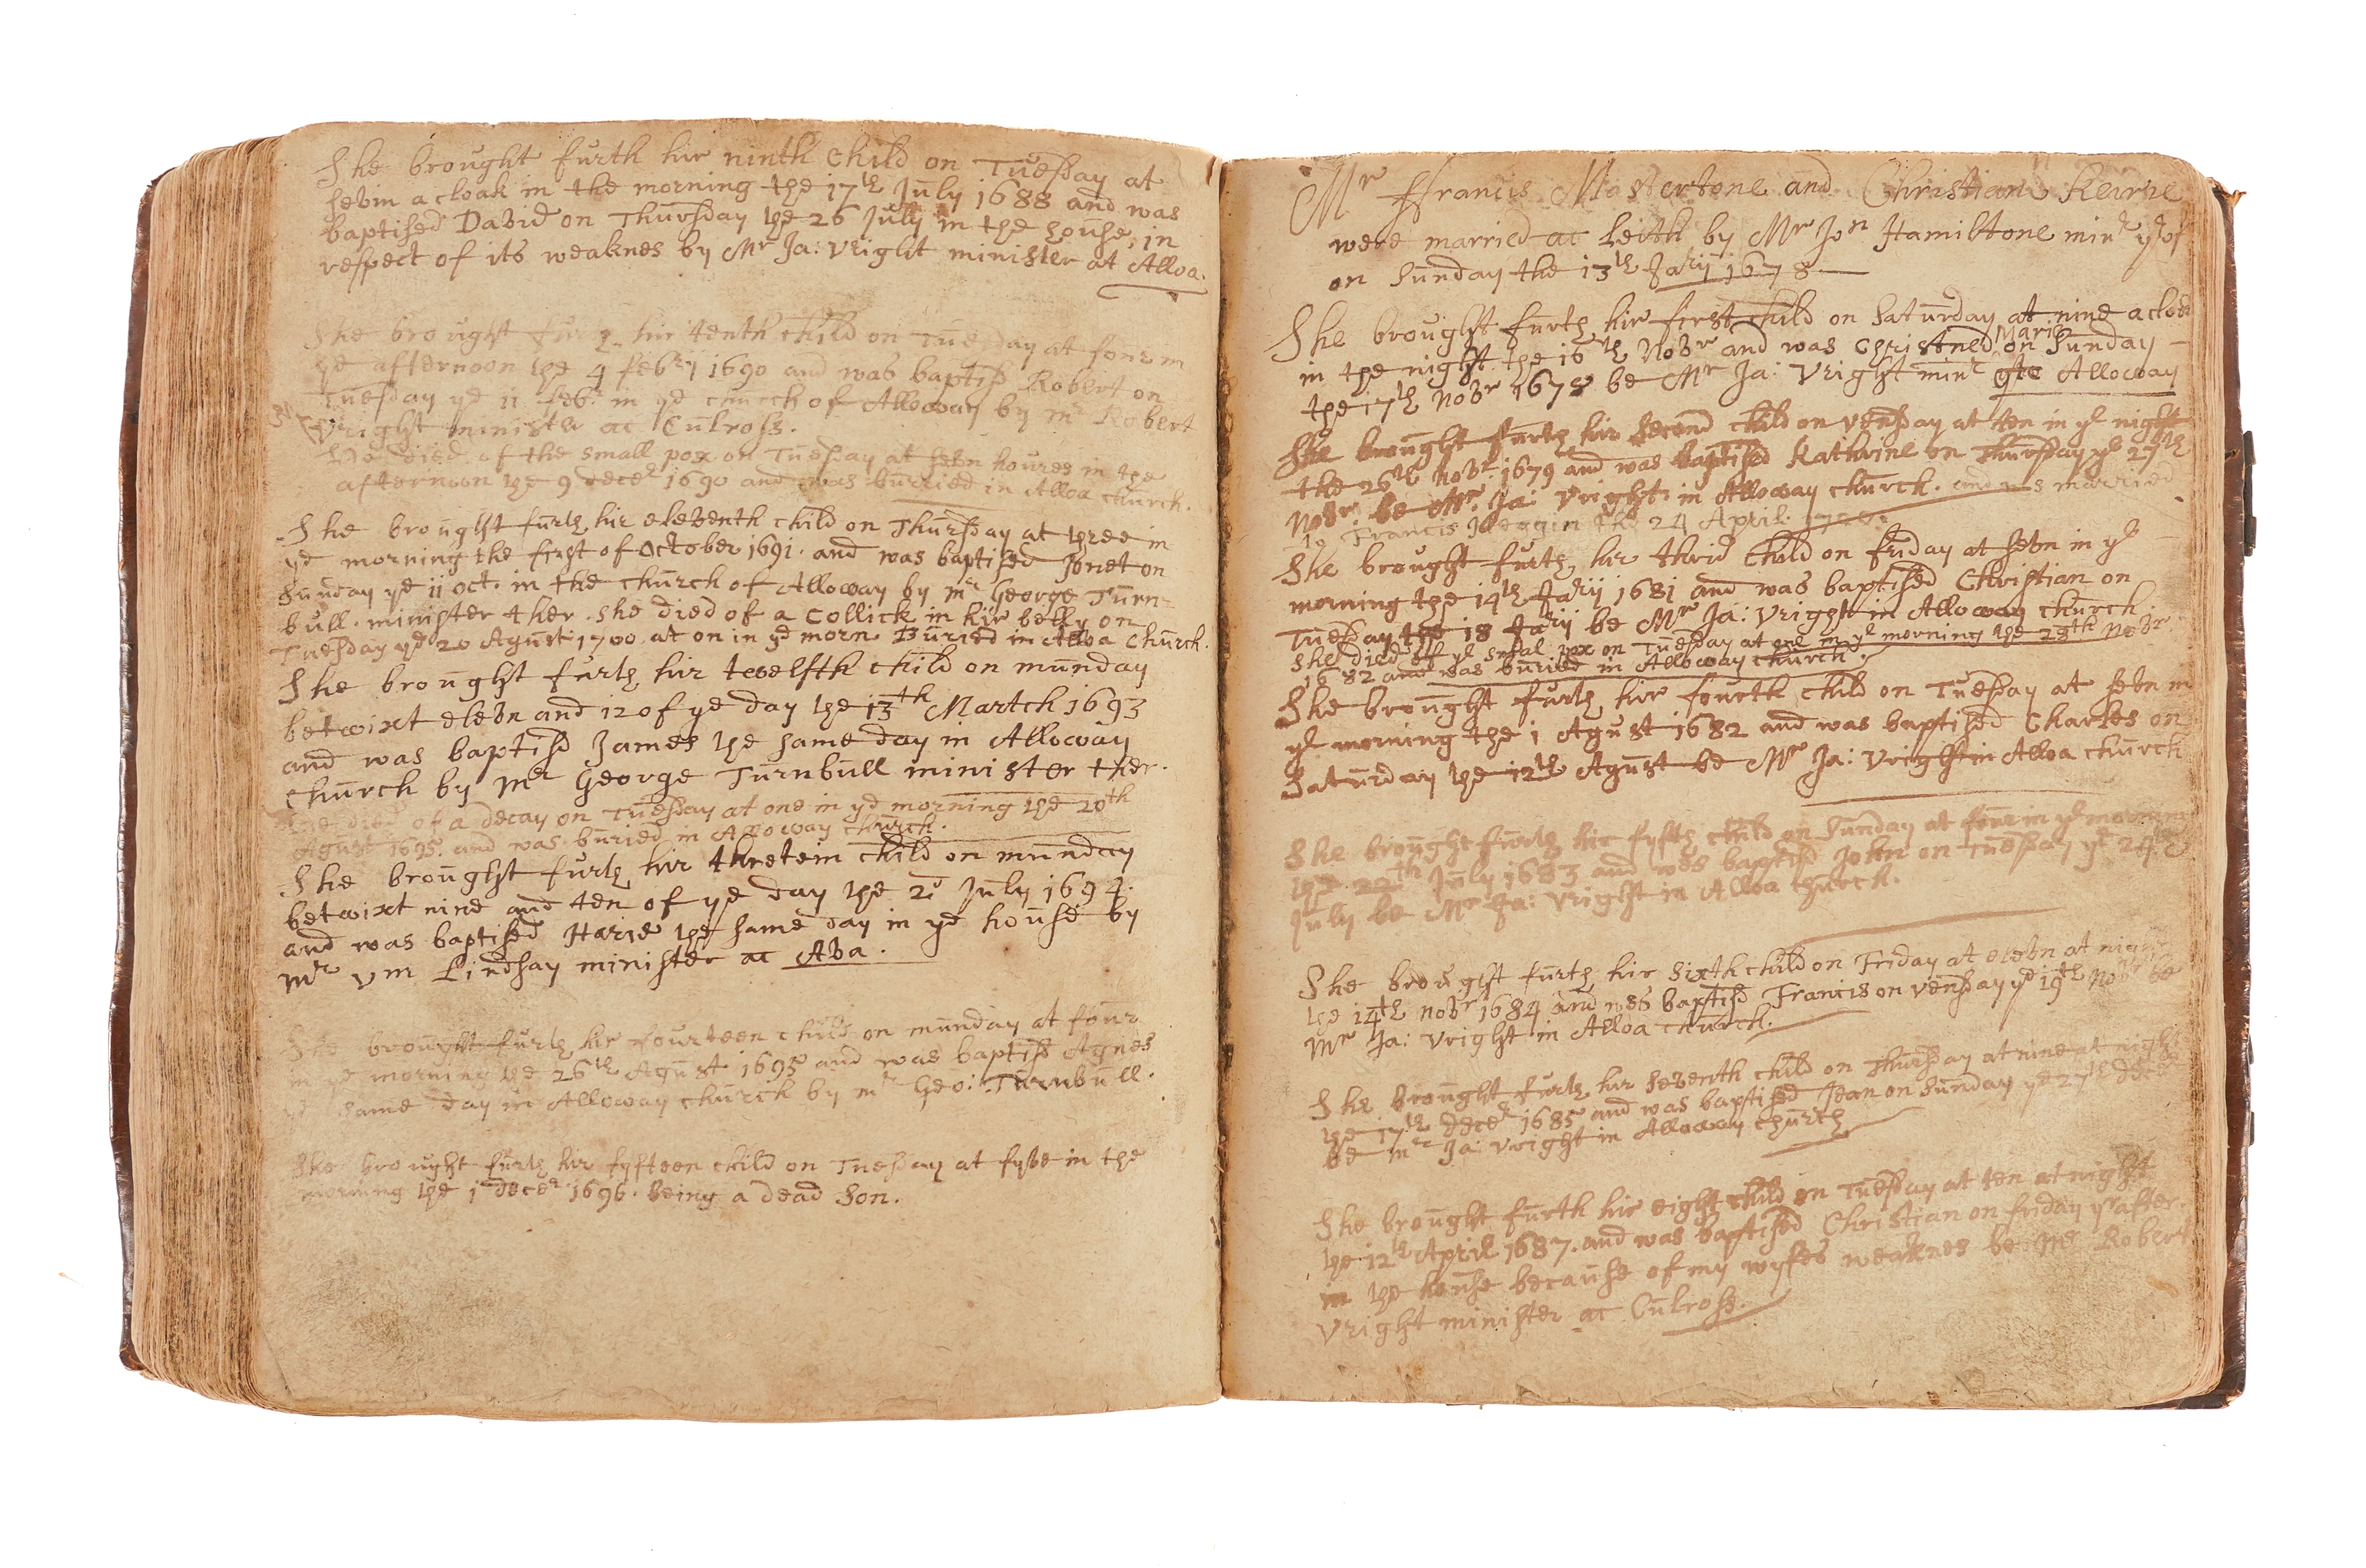 She brought furth hir ninth child on Tuesday at
sevin a cloak in the morning the 17th July 1688 and was
baptised David on Thursday the 26 July in the house, in
respect of its weaknes by Mr Ja: Vright minister at Alloa.
She brought furth hir tenth child on Tuesday at four in
ye afternoon the 4 febry 1690 and was baptisd Robert on
Tuesday ye 11 febr in ye church of Alloway by mr Robert
Vright minister at Culross.
He died of the small pox on Tuesday at sevn houres in the
afternoon the 9 decer 1690 and was burried in Alloa church.
She brought furth hir eleventh child on Thursday at three in
ye morning the first of October 1691. and was baptised Jonet on
Sunday ye 11 oct. in the church of Alloway by mr George Turn=
bull. minister ther. she died of a Collick in hir belly on
Tuesday ye 20 Agust 1700 at on in ye morn. Buried in Alloa Church.
She brought furth hir twelfth child on munday
betwixt elevn and 12 of ye day the 13th Martch 1693
and was baptisd James the same day in Alloway
church by mr George Turnbull minister ther.
He died of a decay on Tuesday at one in ye morning the 20th
Agust 1695. and was buried in Alloway church.
She brought furth hir thretein child on munday
betwixt nine and ten of ye day the 2d July 1694.
and was baptised Harie the same day in ye house by
mr Vm Lindsay minister at Ava.
She brought furth hir fourteen child on munday at four
in ye morning the 26th Agust 1695 and was baptisd Agnes
ye same day in Alloway church by mr Geo: Turnbull.
She brought furth hir fyfteen child on Tuesday at fyve in the
morning the 1 decer 1696. Being a dead Son.
Mr Francis Mastertone and Christian Keirie
were married at Leith by Mr Jon Hamiltone minr yrof
on Sunday the 13th Jarij 1678
She brought furth hir first child on Saturday at nine a cloak
in the night the 16th Novr and was Christned Marie on Sunday
the 17th Novr 1678 be Mr Ja: Vright minr att Alloway
She brought furth hir second child on Vensday at ten in ye night
the 26th Novr. 1679 and was baptised Kathrine on Thursday ye 27th
Novr. be Mr. Ja: Vright in Alloway church. and was married
to Francis the 24 April
She brought furth hir thrid child on friday at sevn in ye
morning the 14th Jarij 1681 and was baptised Christian on
Tuesday the 18 Jarij be Mr Ja: Vright in Alloway church.
she died of ye smal pox on Tuesday at one in ye morning the 28th Novr
1682 and was buried in Alloway church.
She brought furth hir fourth child on Tuesday at sevn in
ye morning the 1 Agust 1682 and was baptised Charles on
Saturday the 12th Agust be Mr Ja: Vright in Alloa church
She brought furth hir fyfth child on Sunday at four in ye morning
the 22th July 1683 and was baptisd John on Tuesday ye 24th
July be Mr Ja: Vright in Alloa church.
She brought furth hir sixth child on Friday at elevn at night
the 14th Novr 1684 and was baptisd Francis on Vensday ye 19th Novr be
Mr Ja: Vright in Alloa church.
She brought furth hir seventh child on Thursday at nine at night
the 17th decer 1685 and was baptised Jean on Sunday ye 27th decer
be mr Ja: Vright in Alloway church
She brought furth hir eight child on Tuesday at ten at night
the 12th April 1687. and was baptised Christian on friday yrafter
in the house because of my wyfes weaknes be Mr Robert
Vright minister at Culross.